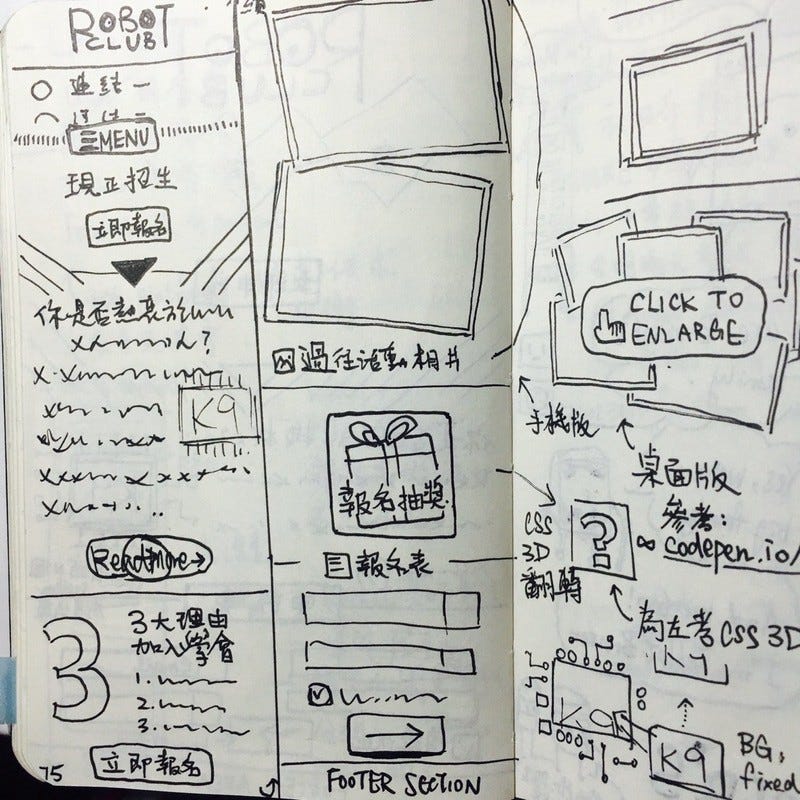 ROBOT
CLUB
連結一
MENU
現正招生
立即報名
你是否熱衷於
?
K9
Read more →
3
3大理由
加入學會
1.
2.
3.
立即報名
75
續
過往活動相片
報名抽獎
報名表
→
FOOTER SECTION
CLICK TO
ENLARGE
手機版
桌面版
參考:
codepen.io/
CSS
3D
翻轉
?
為左者 CSS 3D
K9
K9
K9
BG,
fixed